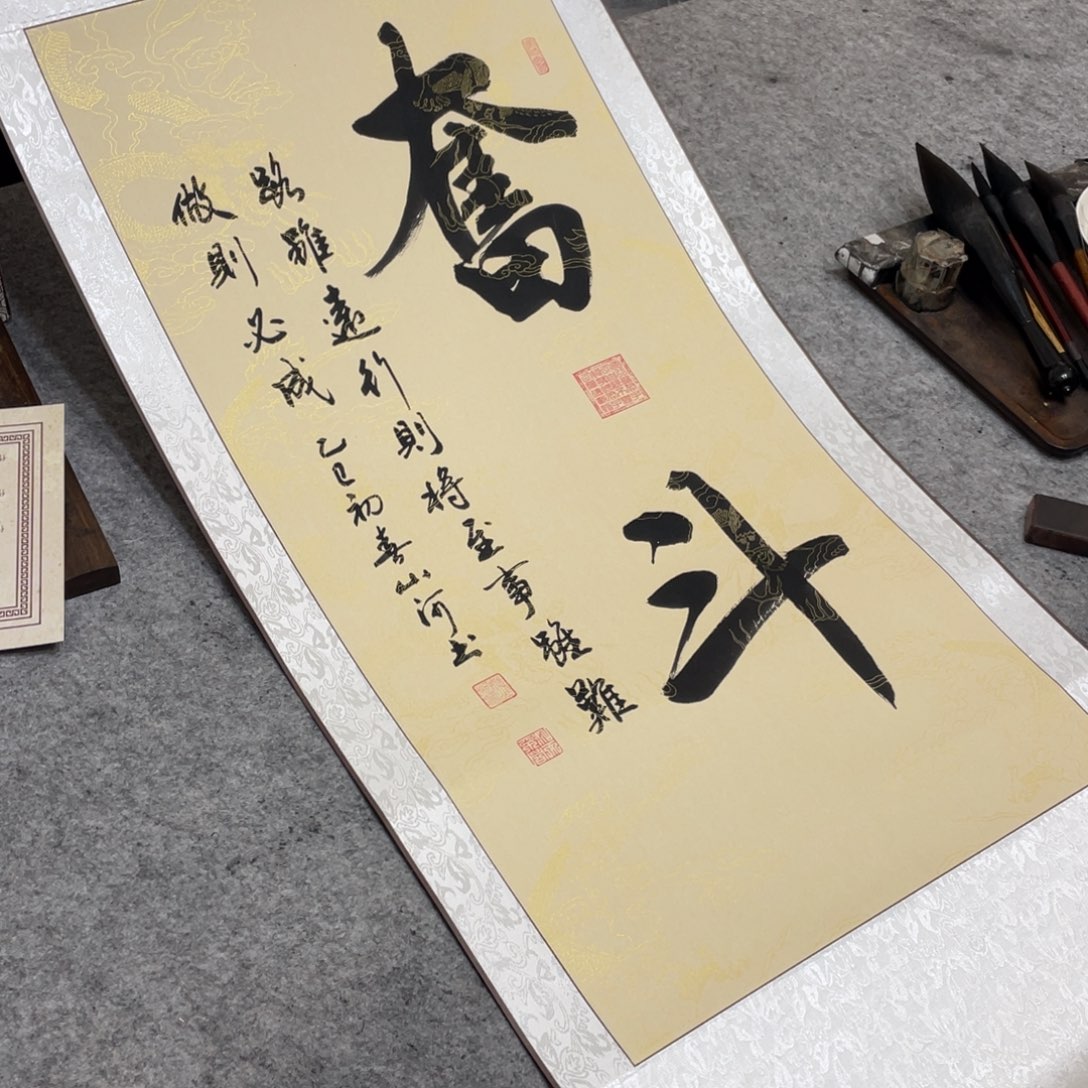 奮斗
路雖遠行則將至事雖難
做則必成 乙巳初春山河书